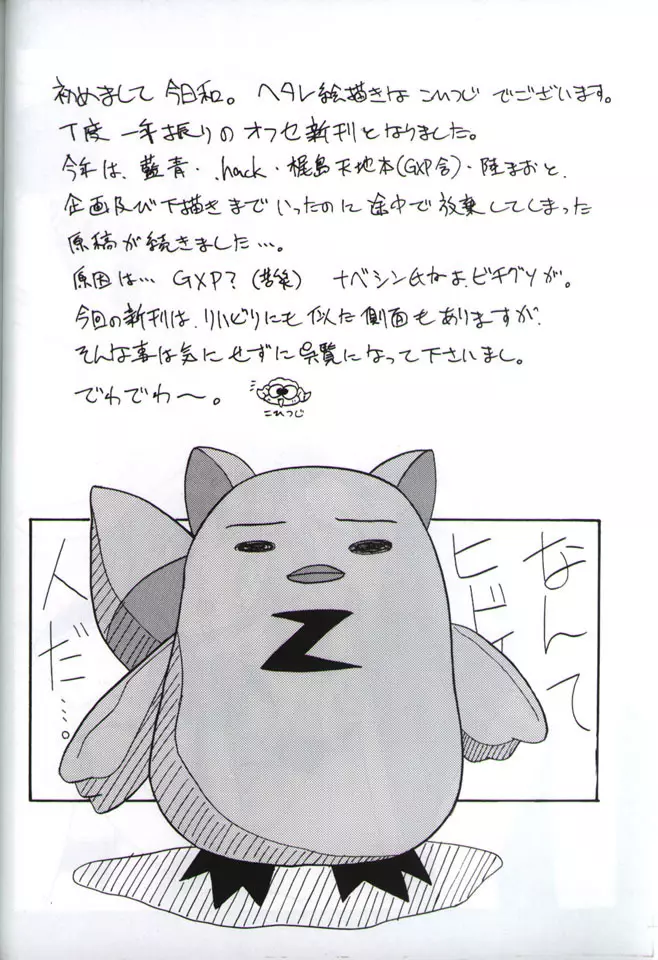 初めまして今日和。ヘタレ絵描きな こひつじ でございます。
丁度 一年振りのオフセ新刊となりました。
今年は、藍青・.hack・梶島天地本(GXP含)・陸まおと、
企画及び下描きまでいったのに途中で放棄してしまった
原稿が続きました…。
原因は… GXP?(苦笑) ナベシン氏なよ、ビチグソが。
今回の新刊は、りいどりにも似た側面もありますが、
そんな事は気にせずに御覧になって下さいまし。
でわでわ〜。
こひつじ
なんて
ヒドイ
人だ…。